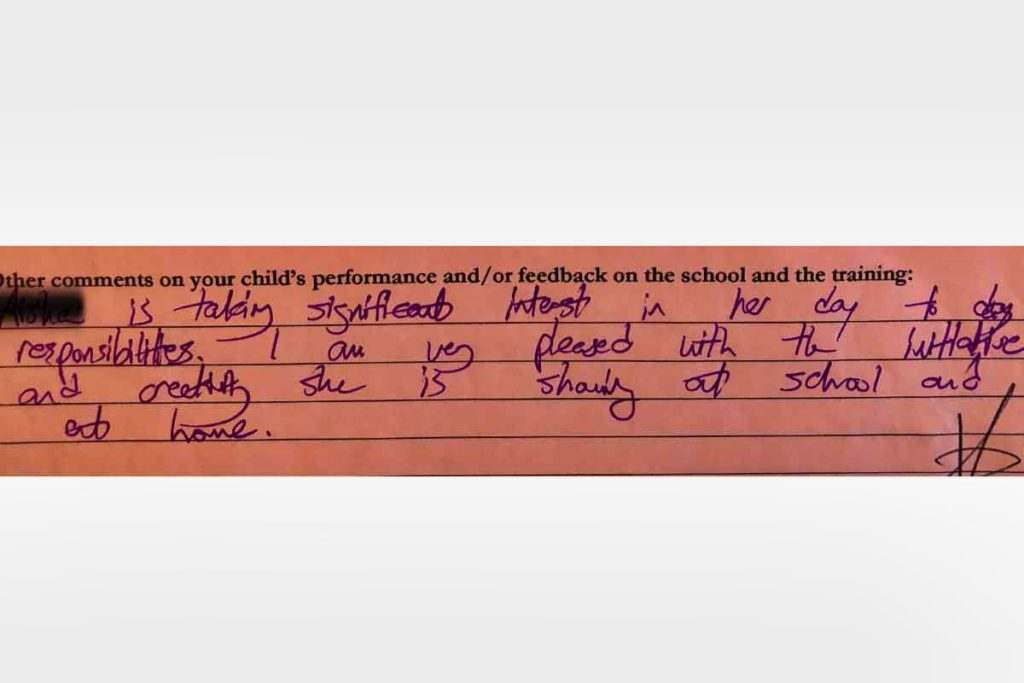 Other comments on your child's performance and/or feedback on the school and the training:
is taking significant interest in her day to day
responsibilities. I am very pleased with the initiative
and creativity she is showing at school and
at home.